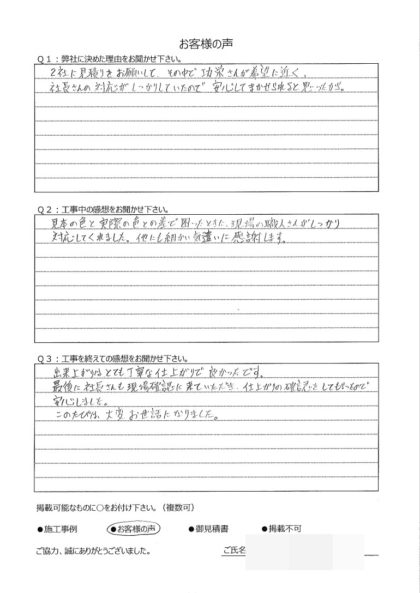 お客様の声
Q1：弊社に決めた理由をお聞かせ下さい。
2社に見積りをお願いして、その中で功栄さんが希望に近く、
社長さんの対応がしっかりしていたので安心してまかせられると思ったから。
Q2：工事中の感想をお聞かせ下さい。
見本の色と実際の色との差で困ったときに、現場の職人さんがしっかり
対応してくれました。他にも細かい気遣いに感謝します。
Q3：工事を終えての感想をお聞かせ下さい。
出来上がりはとても丁寧な仕上がりで良かったです。
最後に社長さんも現場確認に来ていただき、仕上がりの確認をしてもらったので
安心しました。
このたびは、大変お世話になりました。
掲載可能なものに○をお付け下さい。（複数可）
●施工事例 ●お客様の声 ●御見積書 ●掲載不可
ご協力、誠にありがとうございました。 ご氏名